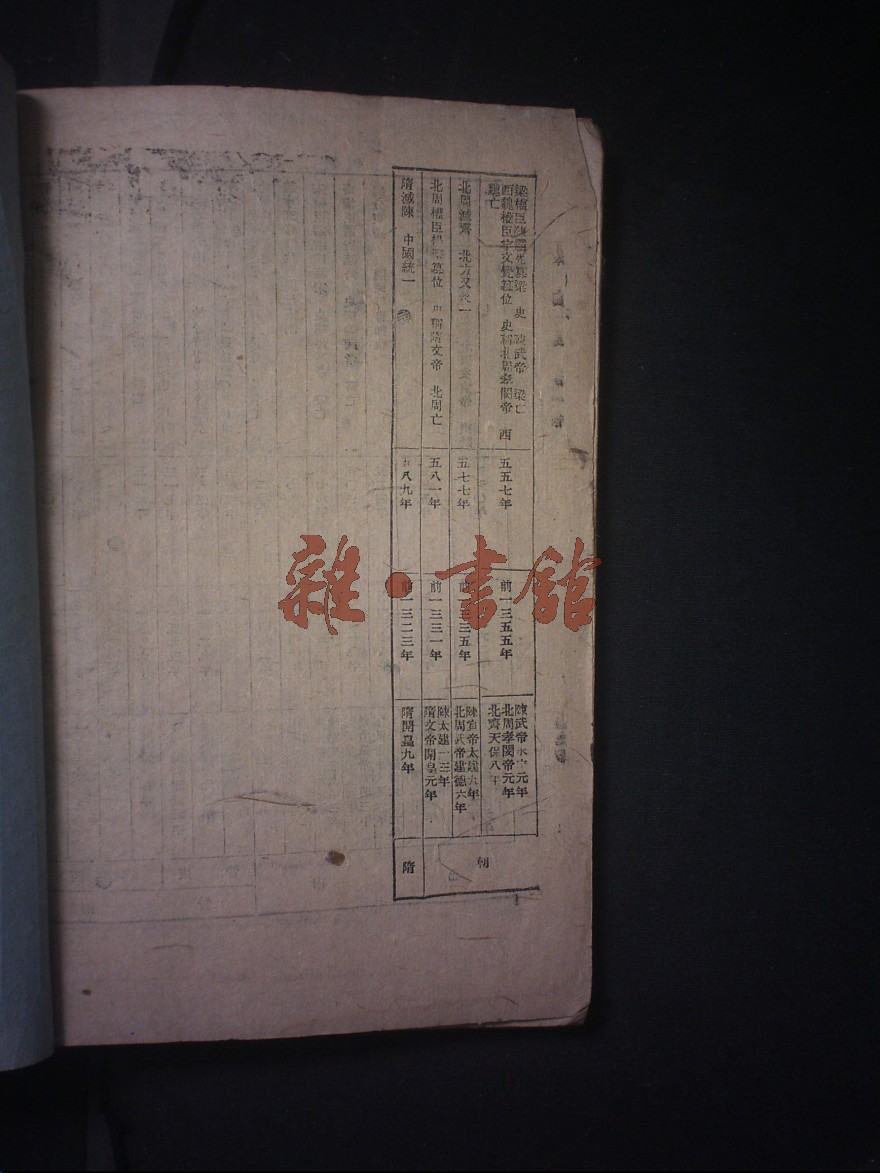 梁權臣陳霸先篡梁 史 陳武帝 梁亡
西魏權臣宇文覺篡位 史稱北周孝閔帝 西
魏亡
五五七年
前一三五五年
陳武帝永 元年
北周孝閔帝元年
北齊天保八年
朝
北周滅齊 北方又 一
五七七年
前一三三五年
陳宣帝太建 年
北周武帝建德六年
北周權臣楊 篡位 史稱隋文帝 北周亡
五八一年
前一三三一年
陳太建一三年
隋文帝開皇元年
隋滅陳 中國統一
五八九年
前一三二三年
隋開皇九年
隋
雜·書館